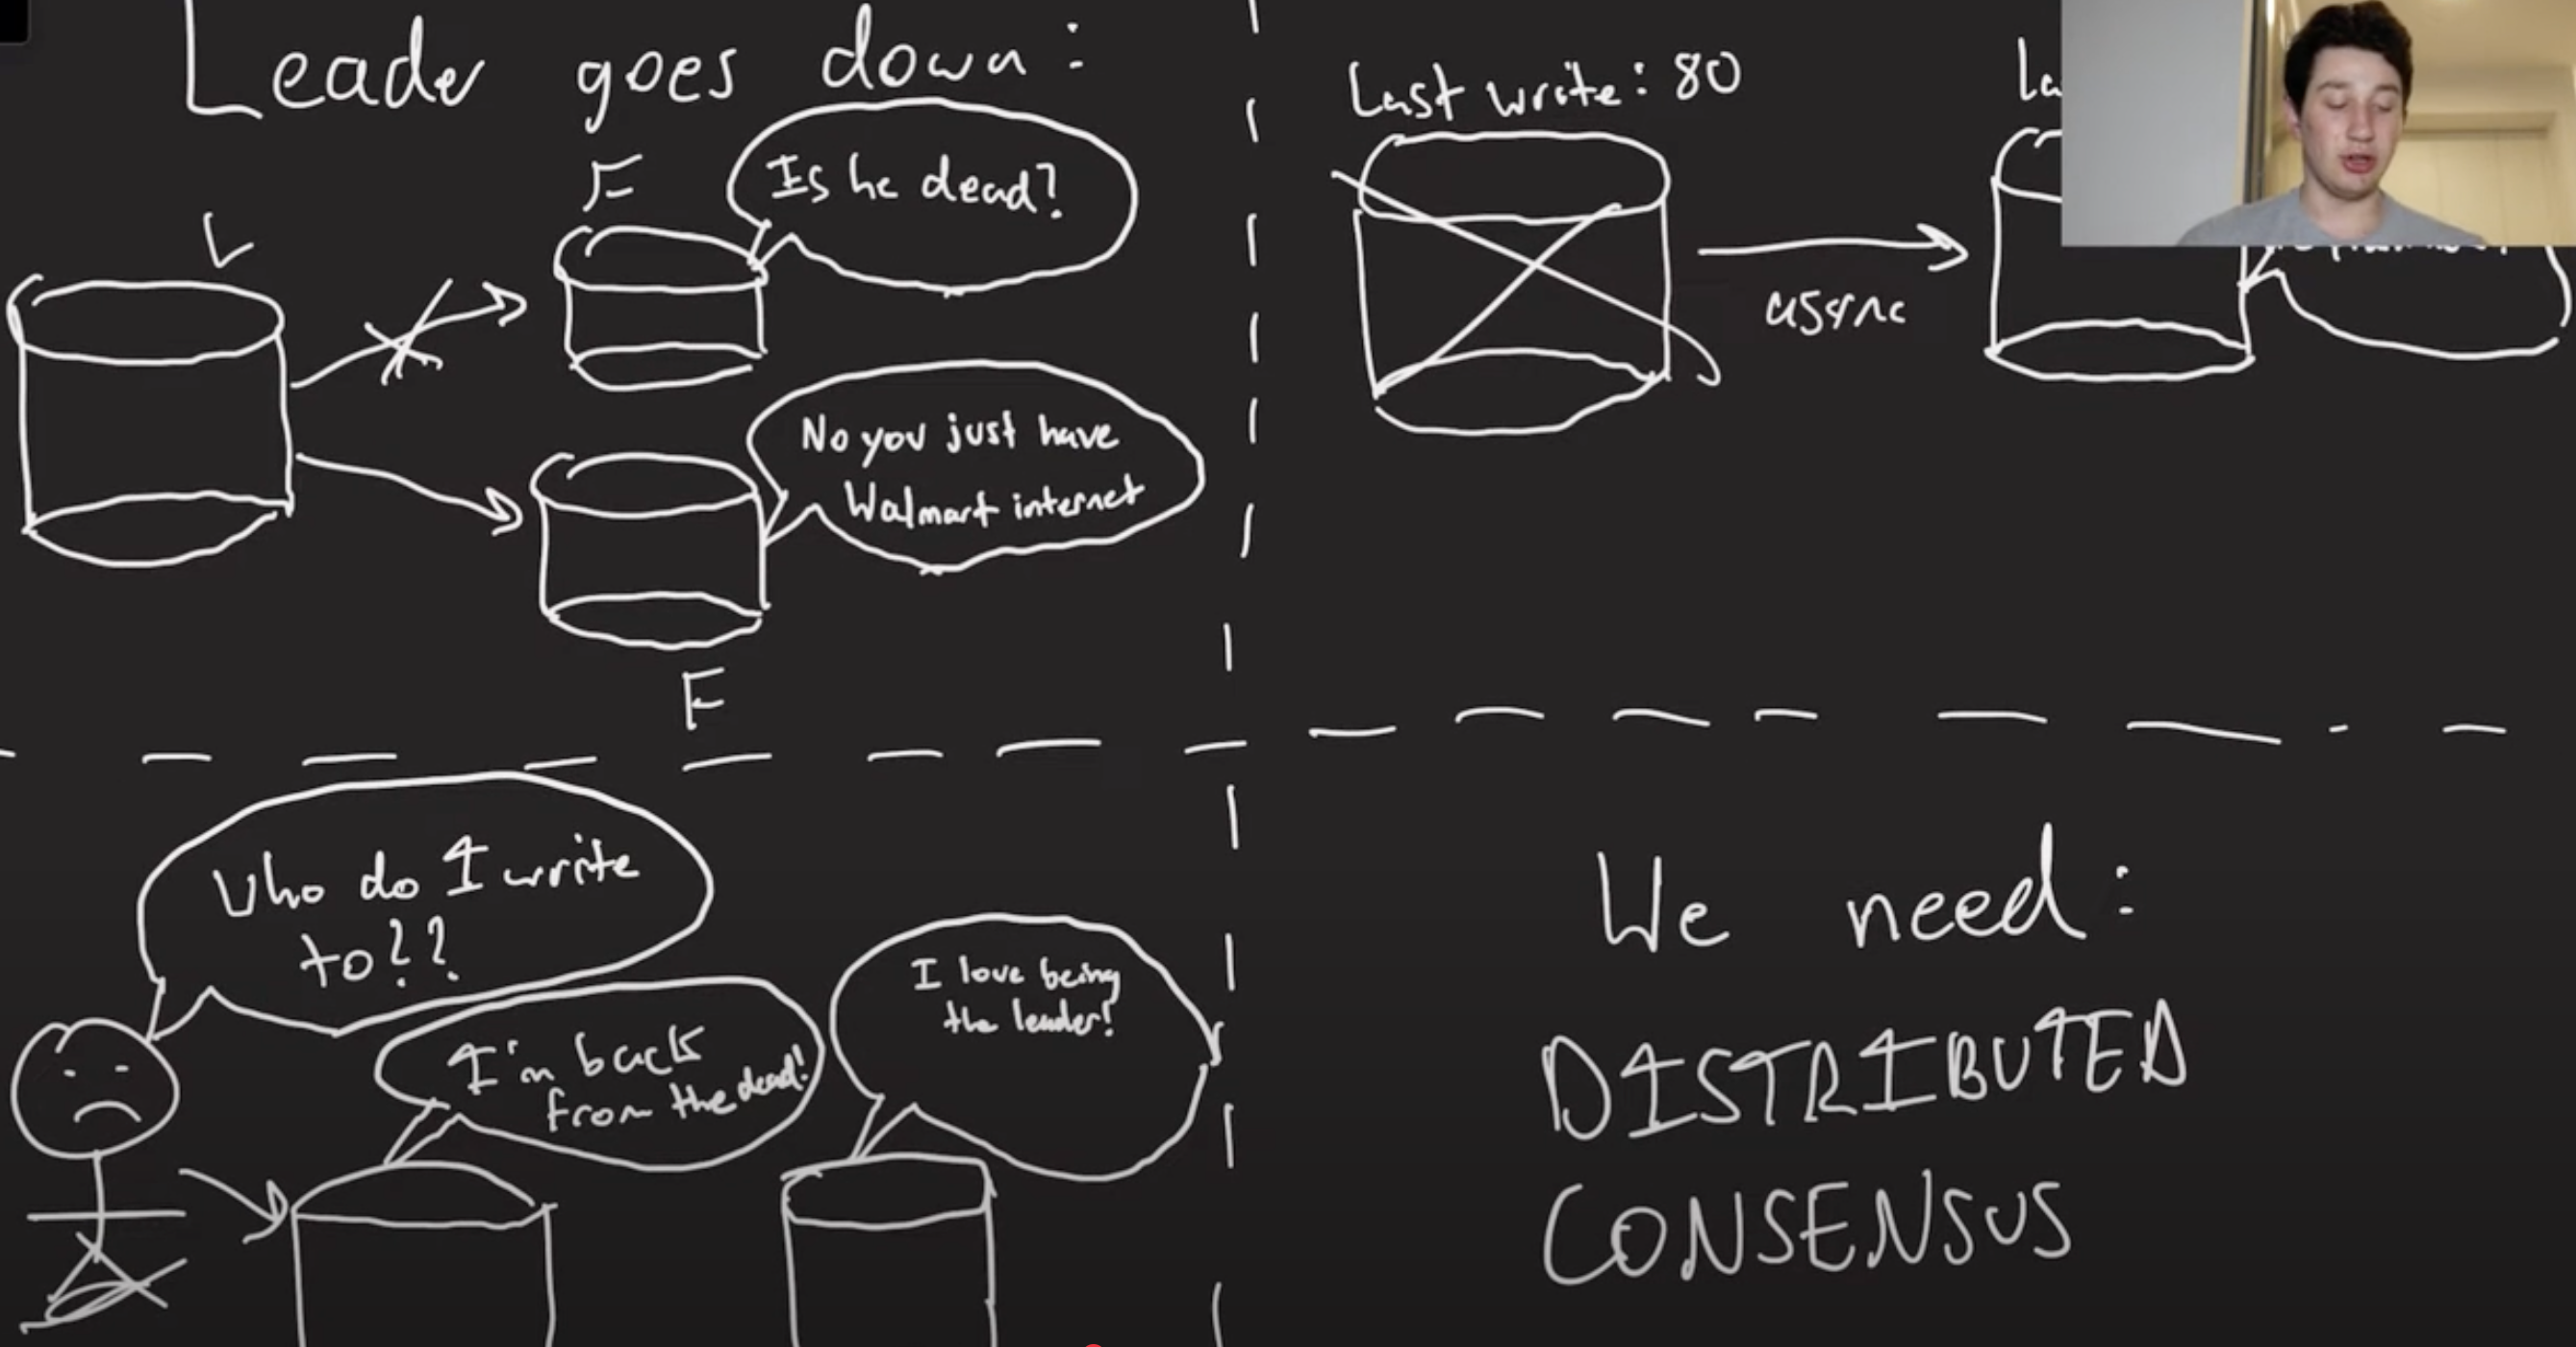 Leader goes down:
F
Is he dead?
L
No you just have
Walmart internet
F
Last write: 80
La
async
Who do I write
to??
I'm back
from the dead!
I love being
the leader!
We need:
DISTRIBUTED
CONSENSUS